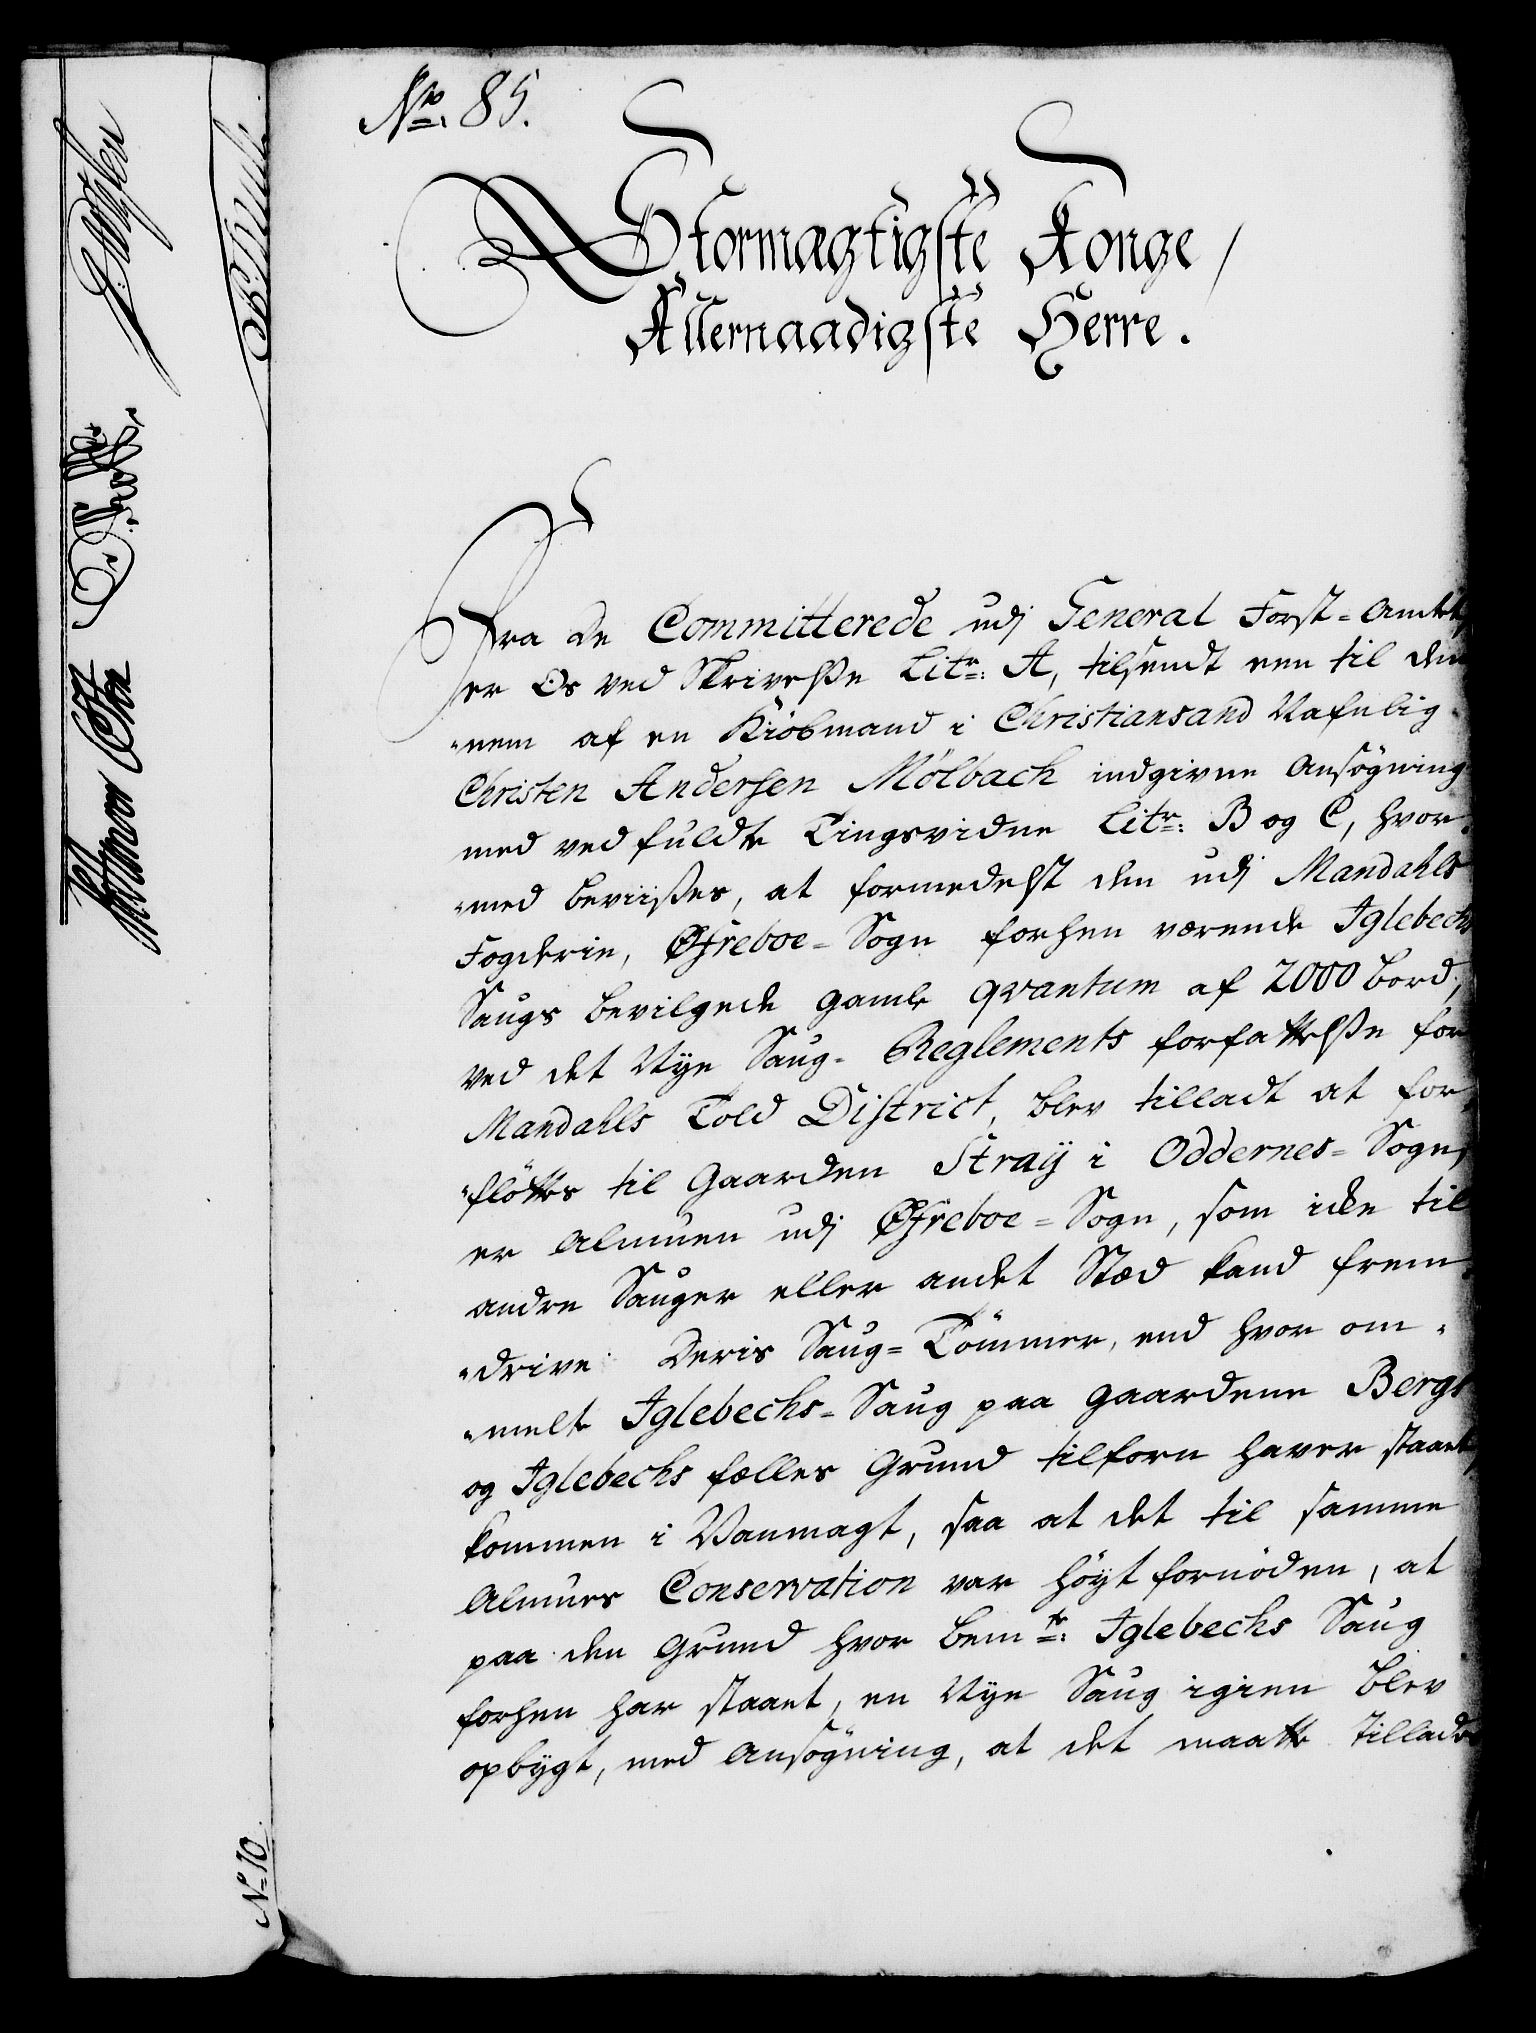 No. 85.
Stormægtigste Konge
Allernaadigste Herre.
Fra de Committerede udj General Forst-Amtet,
er Os ved Skrivelße Litr: A, tilsendt een til dem
nem af en Kiøbmand i Christiansand Nafnlig
Christen Andersen Mölbach indgivne Ansögning
med vedfuldte Tingsvidne Litr: B og C, hvor
med beviißes, at formedelst den udj Mandahls
Fogderie, Øfreboe-Sogn forhen værende Iglebechs
Saugs bevilgede gamle qvantum af 2000 bord,
ved det Nye Saug-Reglements forfattelße for
Mandahls Told District, blev tilladt at for
flöttes til Gaarden Straij i Oddernes-Sogn,
er Almuen udj Øfreboe-Sogn, som icke til
andre Sauger eller andet Stæd kand frem
drive Deris Saug-Tömmer, end hvor om
melte Iglebechs-Saug paa Gaardene Bergs
og Iglebechs fælles Grund tilforn haver staaet,
kommen i Vanmagt, saa at det til samme
Almues Conservation var höyt fornöden, at
paa den Grund hvor bemte: Iglebechs Saug
forhen har staaet, en Nye Saug igien blev
opbygt, med Ansögning, at det maatte tillades
No 10.